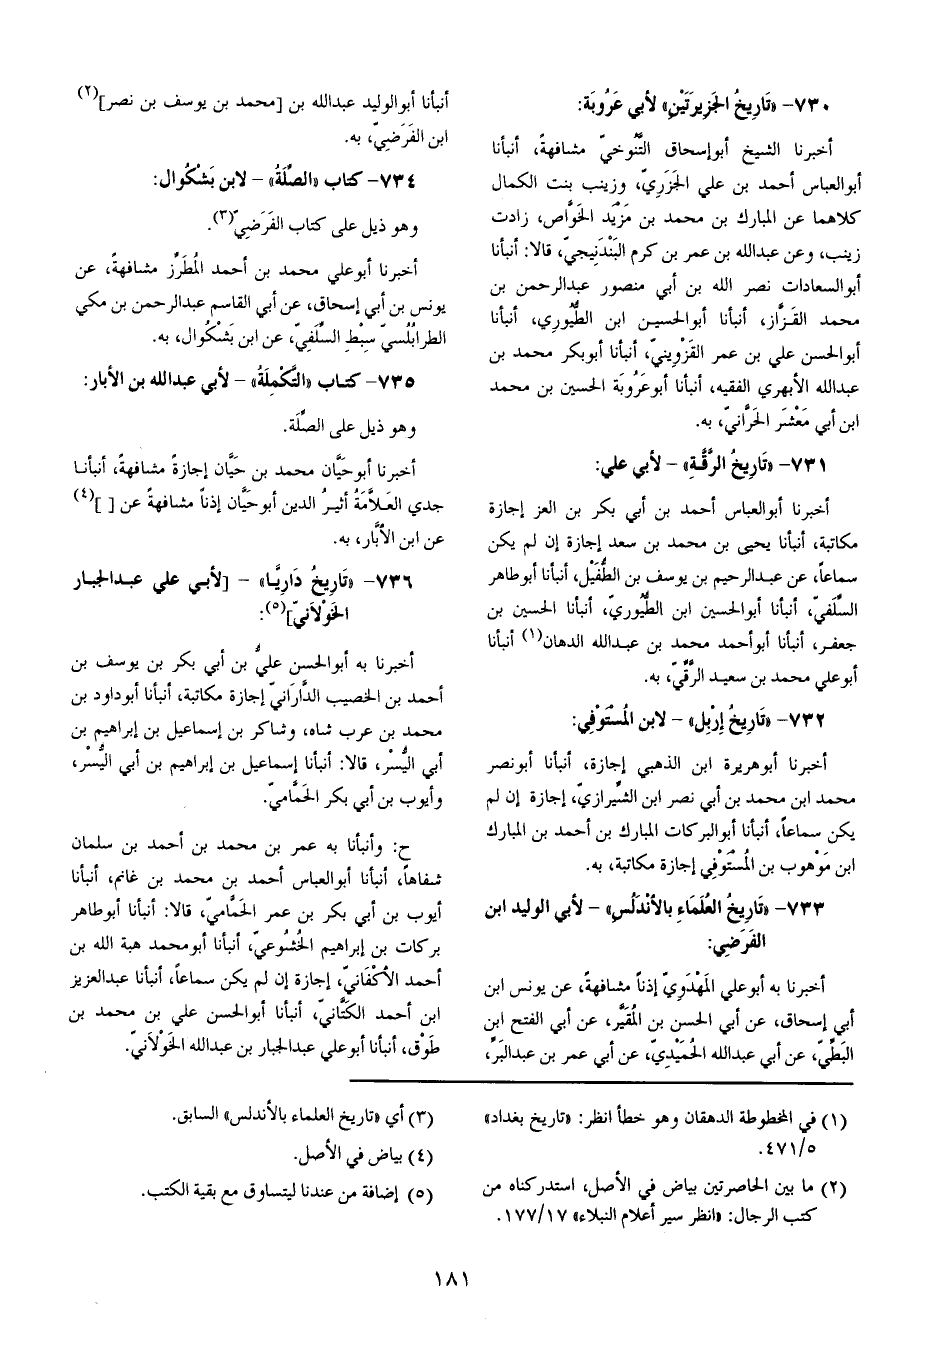 ٧٣٠- «تَارِيخُ الجَزِيرَتَيْنِ» لأبي عَرُوبَة:
أخبرنا الشيخ أبوإسحاق التَّنُوخيّ مشافهةً، أنبأنا
أبوالعباس أحمد بن علي الجَزَرِي، وزينب بنت الكمال
كلاهما عن المبارك بن محمد بن مَزْيَد الخَوَّاص، زادت
زينب، وعن عبدالله بن عمر بن كرم البَنْدَنِيجيّ، قالا: أنبأنا
أبوالسعادات نصر الله بن أبي منصور عبدالرحمن بن
محمد القَزَّاز، أنبأنا أبوالحسين ابن الطُّيُوري، أنبأنا
أبوالحسن علي بن عمر القَزْوِينيّ، أنبأنا أبوبكر محمد بن
عبدالله الأبهري الفقيه، أنبأنا أبوعَرُوبَة الحسين بن محمد
ابن أبي مَعْشَر الحَرَّانيّ، به.
٧٣١- «تَارِيخُ الرَّقَّة» - لأبي علي:
أخبرنا أبوالعباس أحمد بن أبي بكر بن العز إجازة
مكاتبة، أنبأنا يحيى بن محمد بن سعد إجازة إن لم يكن
سماعاً، عن عبدالرحيم بن يوسف بن الطُّفَيْل، أنبأنا أبوطاهر
السِّلَفيّ، أنبأنا أبوالحسين ابن الطُّيُوريّ، أنبأنا الحسين بن
جعفر، أنبأنا أبوأحمد محمد بن عبدالله الدهان(١) أنبأنا
أبوعلي محمد بن سعيد الرقِّيّ، به.
٧٣٢- «تَارِيخُ إِرْبِل» - لابن المُسْتَوْفي:
أخبرنا أبوهريرة ابن الذهبي إجازة، أنبأنا أبونصر
محمد ابن محمد بن أبي نصر ابن الشِّيرازيّ، إجازة إن لم
يكن سماعاً، أنبأنا أبوالبركات المبارك بن أحمد بن المبارك
ابن مَوْهوب بن المُسْتَوْفي إجازة مكاتبة، به.
٧٣٣- «تَارِيخُ العُلَمَاءِ بالأَنْدَلُسِ» - لأبي الوليد ابن
الفَرَضِي:
أخبرنا به أبوعلي المَهْدَوِيّ إذناً مشافهةً، عن يونس ابن
أبي إسحاق، عن أبي الحسن بن المُقَيَّر، عن أبي الفتح ابن
البَطِّيّ، عن أبي عبدالله الحُمَيْديّ، عن أبي عمر بن عبدالبَرِّ،
أنبأنا أبوالوليد عبدالله بن [محمد بن يوسف بن نصر](٢)
ابن الفَرَضيّ، به.
٧٣٤- كتاب «الصِّلَةُ» - لابن بَشْكُوال:
وهو ذيل على كتاب الفَرَضيّ(٣).
أخبرنا أبوعلي محمد بن أحمد المُطَرِّز مشافهةً، عن
يونس بن أبي إسحاق، عن أبي القاسم عبدالرحمن بن مكي
الطرابُلُسيّ سِبْطِ السِّلَفيّ، عن ابن بَشْكُوال، به.
٧٣٥- كتاب «التَّكْملَةُ» - لأبي عبدالله بن الأبار:
وهو ذيل على الصِّلَة.
أخبرنا أبوحَيَّان محمد بن حَيَّان إجازةً مشافهةً، أنبأنا
جدي العَلاَّمَةُ أثيرُ الدين أبوحَيَّان إذناً مشافهةً عن [ ](٤)
عن ابن الأبَّار، به.
٧٣٦- «تَارِيخُ دَارِيَّا» - [لأبي علي عبدالجبار
الخَوْلانيّ](٥):
أخبرنا به أبوالحسن عليُّ بن أبي بكر بن يوسف بن
أحمد بن الخصيب الدَّارَانيّ إجازة مكاتبة، أنبأنا أبوداود بن
محمد بن عرب شاه، وشاكر بن إسماعيل بن إبراهيم بن
أبي اليُسْر، قالا: أنبأنا إسماعيل بن إبراهيم بن أبي اليُسْر،
وأيوب بن أبي بكر الحَمَّاميّ.
ح: وأنبأنا به عمر بن محمد بن أحمد بن سلمان
شفاهاً، أنبأنا أبوالعباس أحمد بن محمد بن غانم، أنبأنا
أيوب بن أبي بكر بن عمر الحَمَّاميّ، قالا: أنبأنا أبوطاهر
بركات بن إبراهيم الخُشُوعيّ، أنبأنا أبومحمد هبة الله بن
أحمد الأكْفَانيّ، إجازة إن لم يكن سماعاً، أنبأنا عبدالعزيز
ابن أحمد الكَتَّانيّ، أنبأنا أبوالحسن علي بن محمد بن
طَوْق، أنبأنا أبوعلي عبدالجبار بن عبدالله الخَوْلانيّ.
(١) في المخطوطة الدهقان وهو خطأ انظر: «تاريخ بغداد»
٤٧١/٥.
(٢) ما بين الحاصرتين بياض في الأصل، استدركناه من
كتب الرجال: «انظر سير أعلام النبلاء» ١٧٧/١٧.
(٣) أي «تاريخ العلماء بالأندلس» السابق.
(٤) بياض في الأصل.
(٥) إضافة من عندنا ليتساوق مع بقية الكتب.
١٨١